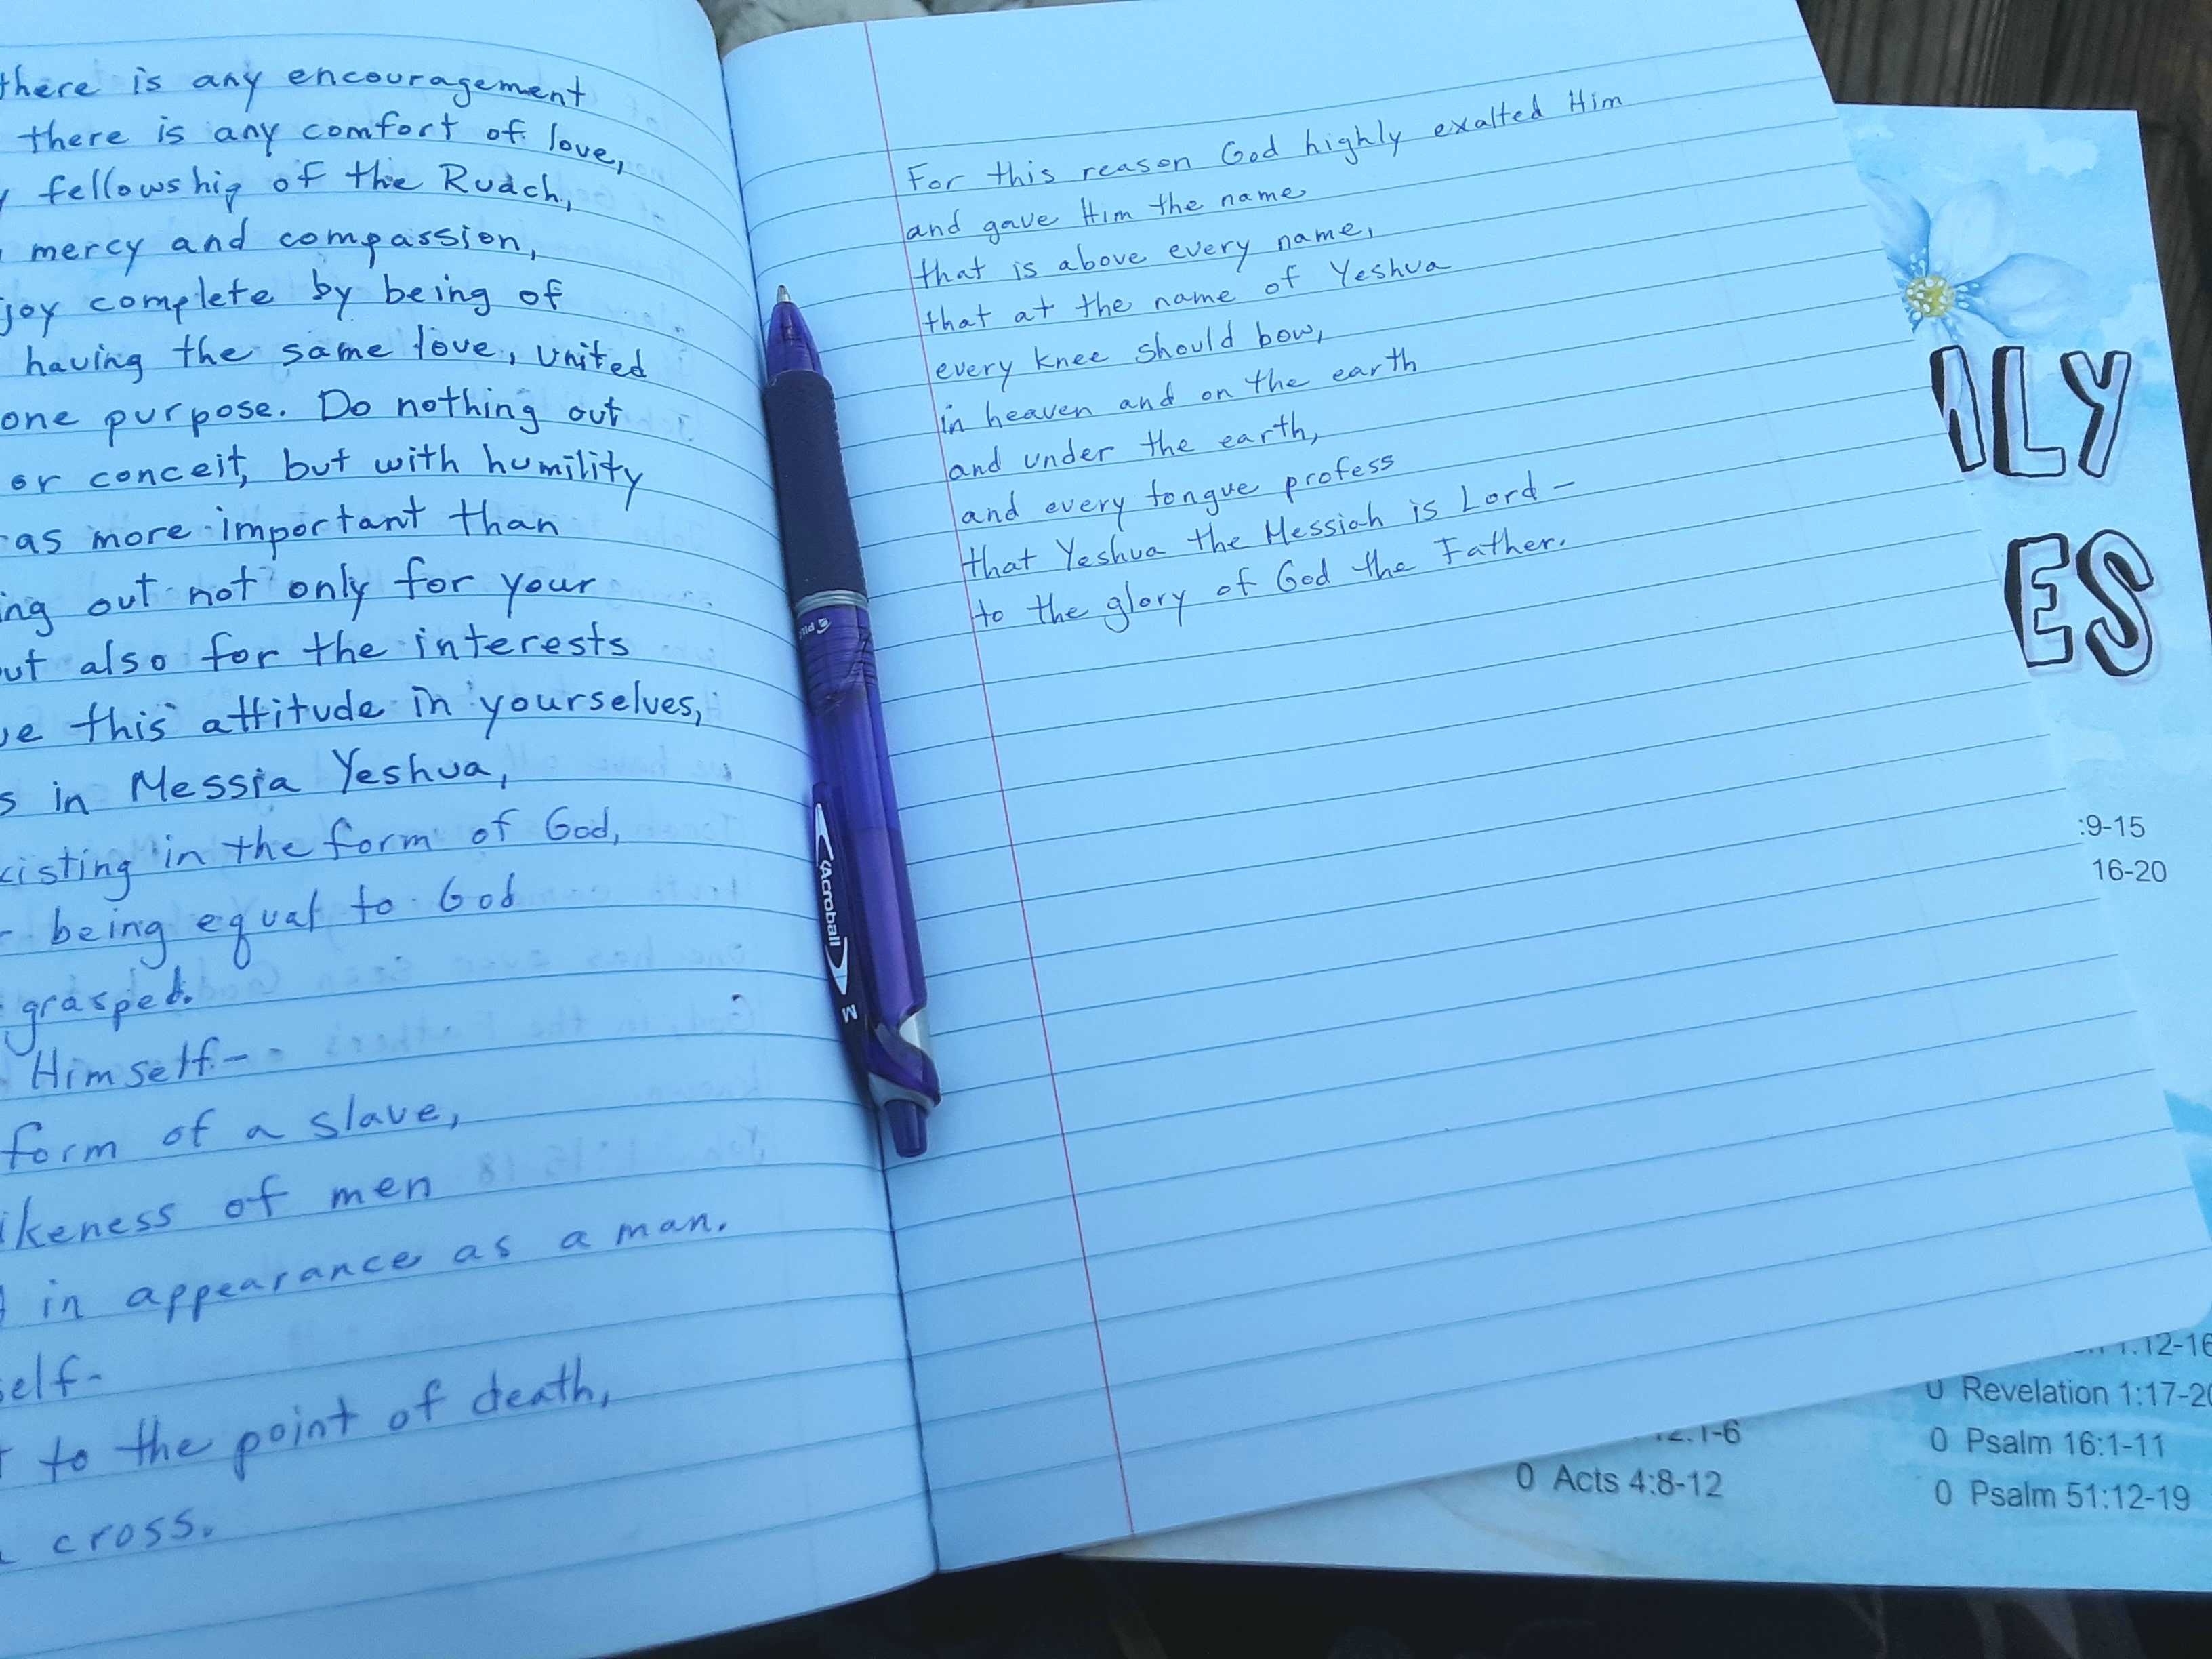 there is any encouragement
there is any comfort of love,
fellowship of the Ruach,
mercy and compassion,
joy complete by being of
having the same love, united
one purpose. Do nothing out
or conceit, but with humility
as more important than
ing out not only for your
ut also for the interests
this attitude in yourselves,
s in Messia Yeshua,
isting in the form of God,
being equal to God
grasped.
Himself-
form of a slave,
ikeness of men
in appearance as a man.
self-
to the point of death,
cross.
For this reason God highly exalted Him
and gave Him the name
that is above every name,
that at the name of Yeshua
every knee should bow,
in heaven and on the earth
and under the earth,
and every tongue profess
that Yeshua the Messiah is Lord -
to the glory of God the Father.
Acroball M
ILY
ES
:9-15
16-20
1:12-16
0 Revelation 1:17-20
0 Psalm 16:1-11
0 Psalm 51:12-19
12:1-6
0 Acts 4:8-12